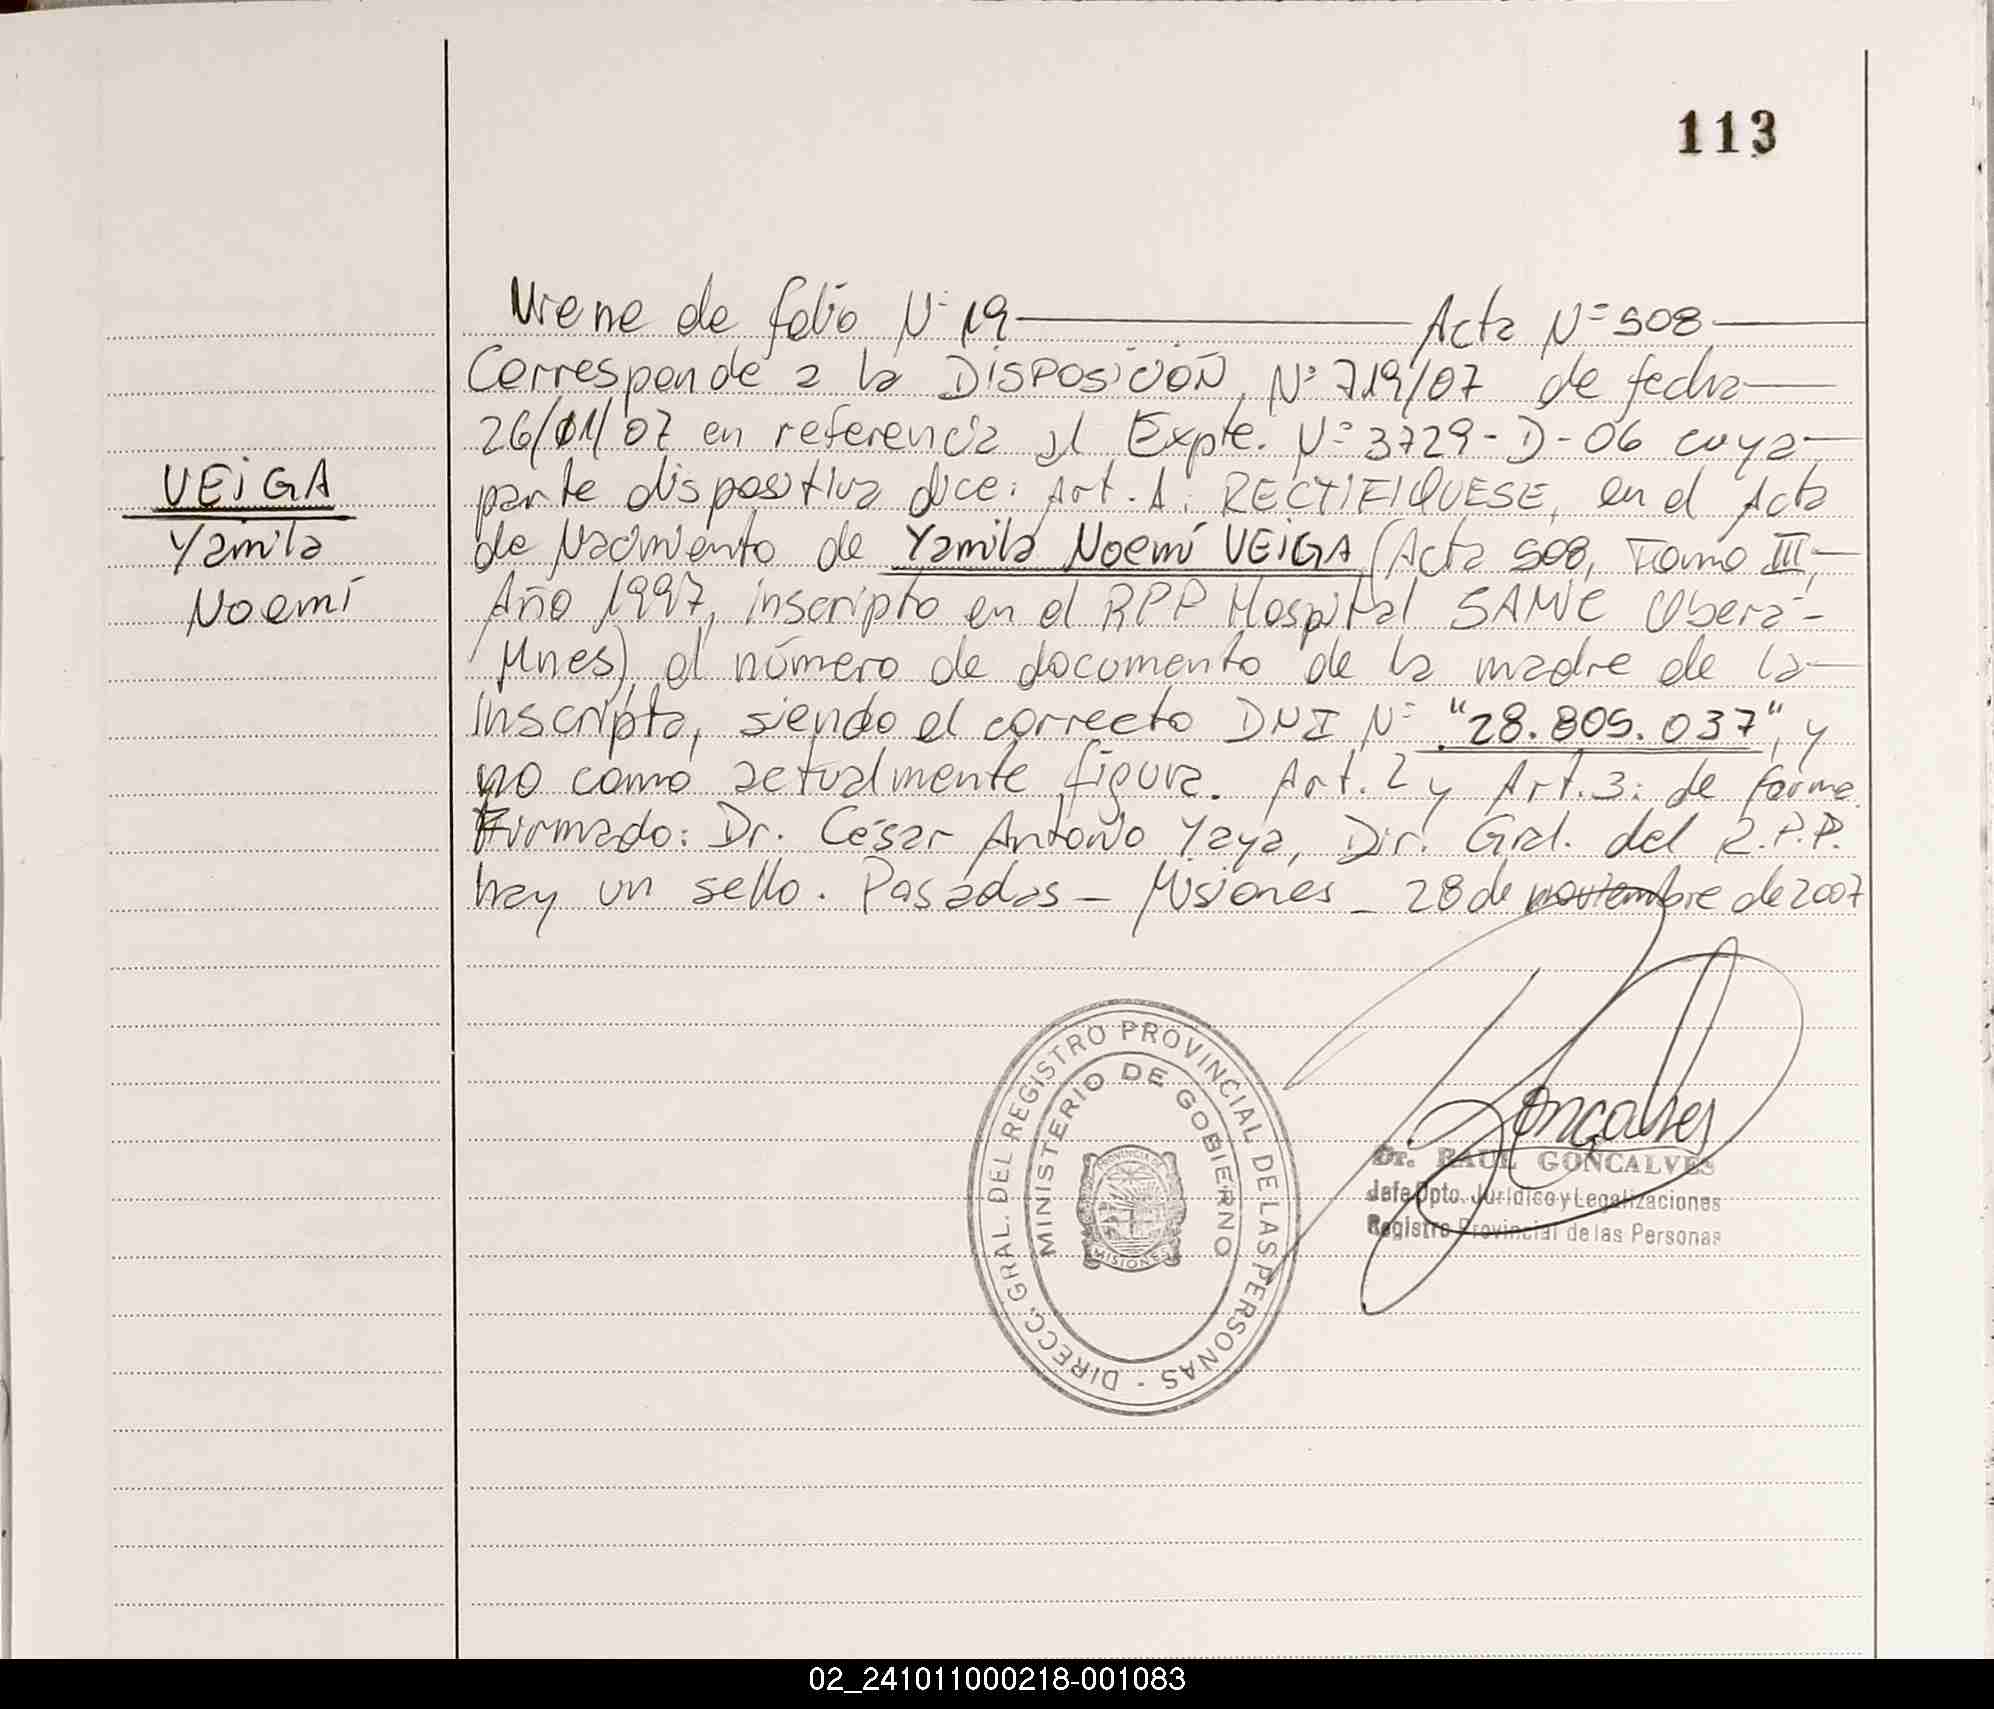 113
Viene de folio Nº 19 Acta Nº 508
Corresponde a la DISPOSICIÓN Nº 719/07 de fecha
26/01/07 en referencia al Expte. Nº 3729-D-06 cuya
parte dispositiva dice: Art. 1: RECTIFIQUESE, en el Acta
de Nacimiento de Yamila Noemí VEIGA (Acta 508, Tomo III,
Año 1997, inscripto en el RPP Hospital SAMIC Oberá -
Mnes) el número de documento de la madre de la
inscripta, siendo el correcto DNI Nº "28.805.037", y
no como actualmente figura. Art. 2 y Art. 3: de forma.
Firmado: Dr. César Antonio Yaya, Dir. Gral. del R.P.P.
hay un sello. Posadas - Misiones - 28 de noviembre de 2007
VEIGA
Yamila
Noemí
DIRECC. GRAL. DEL REGISTRO PROVINCIAL DE LAS PERSONAS -
MINISTERIO DE GOBIERNO
PROVINCIA DE
MISIONES
Gonçalves
Dr. RAUL GONCALVES
Jefe Dpto. Jurídico y Legalizaciones
Registro Provincial de las Personas
02_241011000218-001083